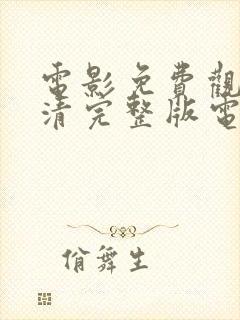 電影免費觀
清完整版電
俏舞生